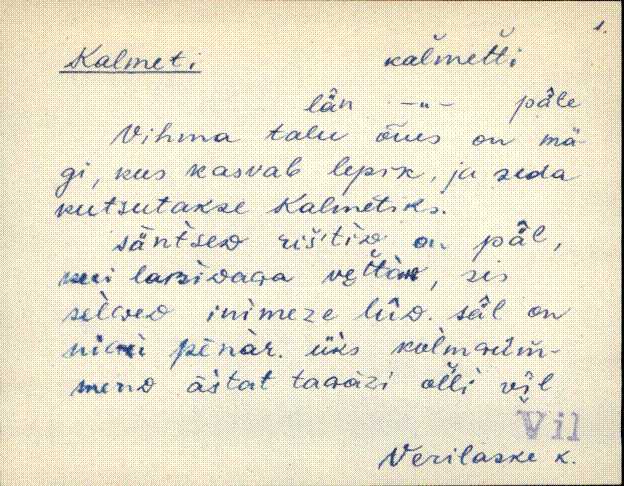 1.
Kalmeti kalmetti
län -"- päle
Vihma talu õues on mä-
gi, kus kasvab lepik, ja seda
kutsutakse Kalmetiks.
säntsed rištid on päl,
lapidaga sis
inimeze lûd. säl on
pēnär. üks kolmküm-
mend āstat tagäzi olli vil
Vil
Verilaske k.